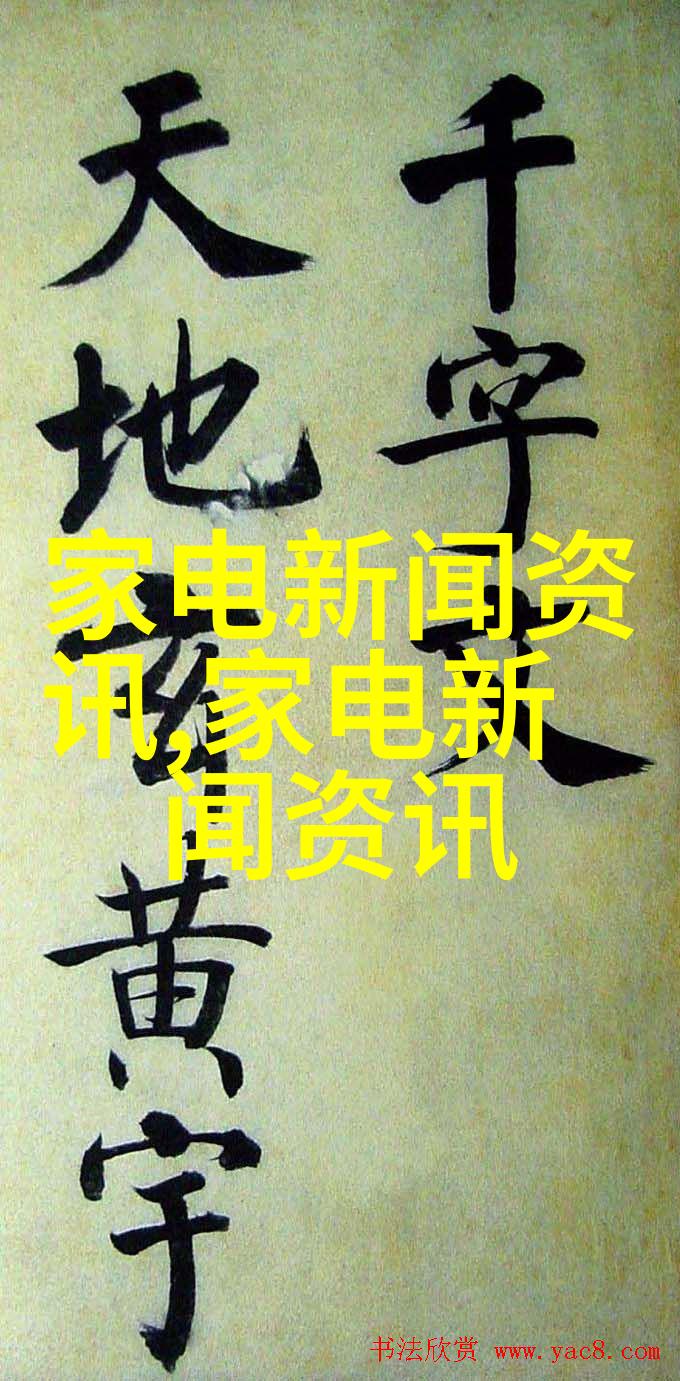 千字文
天地玄黄宇
家电新闻资
讯,家电新
闻资讯
书法欣赏 www.yac8.com